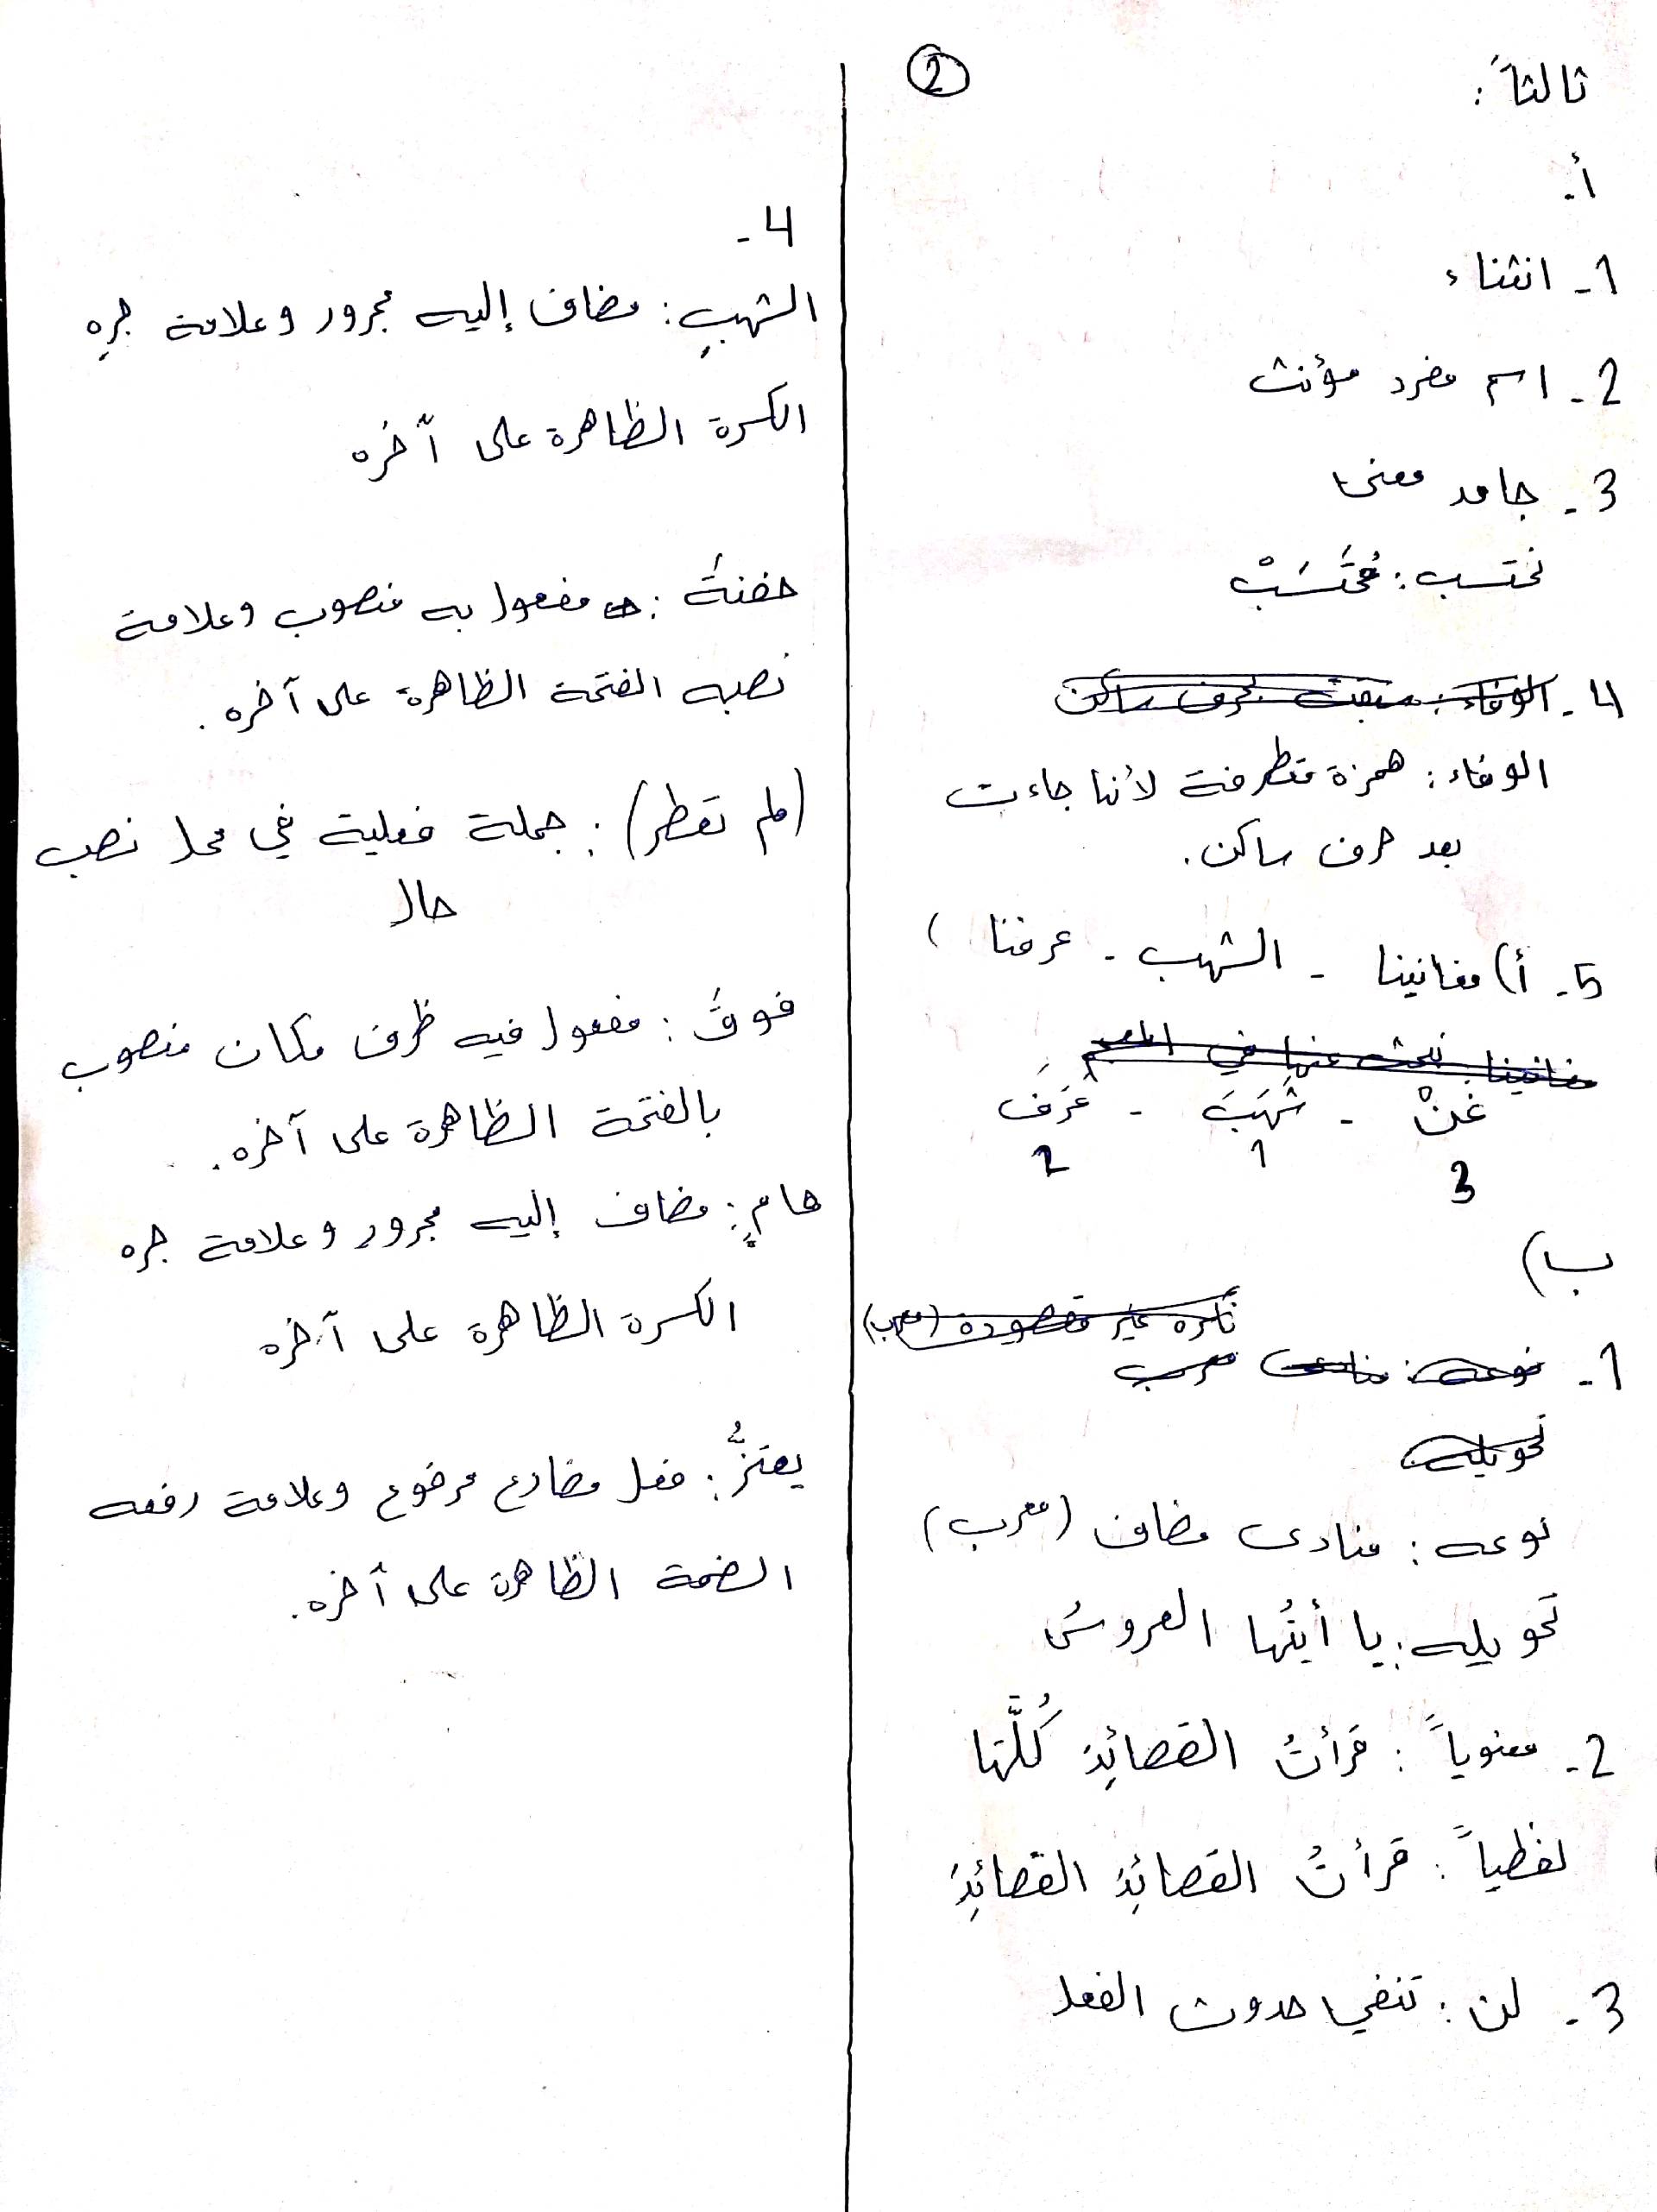 2
ثالثاً:
أ-
1- انثناء
2- اسم مفرد مؤنث
3- جامد معنى
نحتسب: مُحْتَسَبْ
4- الوفاء: سبقت بحرف ساكن
الوفاء: همزة متطرفة لأنها جاءت
بعد حرف ساكن.
5- أ) مغانينا - الشهب - عرفنا )
مغانينا نبحث عنها في المعجم
غَنْ - شَهَبَ - عَرَفَ
3 1 2
ب)
نكرة غير مقصودة (معرب)
1- نوعه: منادى معرب
تحويله:
نوعه: منادى مضاف (معرب)
تحويله: يا أيتُها العروسُ
2- معنوياً: قرأتُ القصائِدَ كُلَّها
لفظياً: قرأتُ القصائِدَ القصائِدَ
3- لن: تنفي حدوث الفعل
4-
الشهبِ: مضاف إليه مجرور وعلامة جرهِ
الكسرة الظاهرة على آخره
حفنةً: مفعول به منصوب وعلامة
نصبه الفتحة الظاهرة على آخره.
(لم تمطر): جملة فعلية في محل نصب
حال
فوقَ: مفعول فيه ظرف مكان منصوب
بالفتحة الظاهرة على آخره.
هامٍ: مضاف إليه مجرور وعلامة جره
الكسرة الظاهرة على آخره
يهتزُّ: فعل مضارع مرفوع وعلامة رفعه
الضمة الظاهرة على آخره.